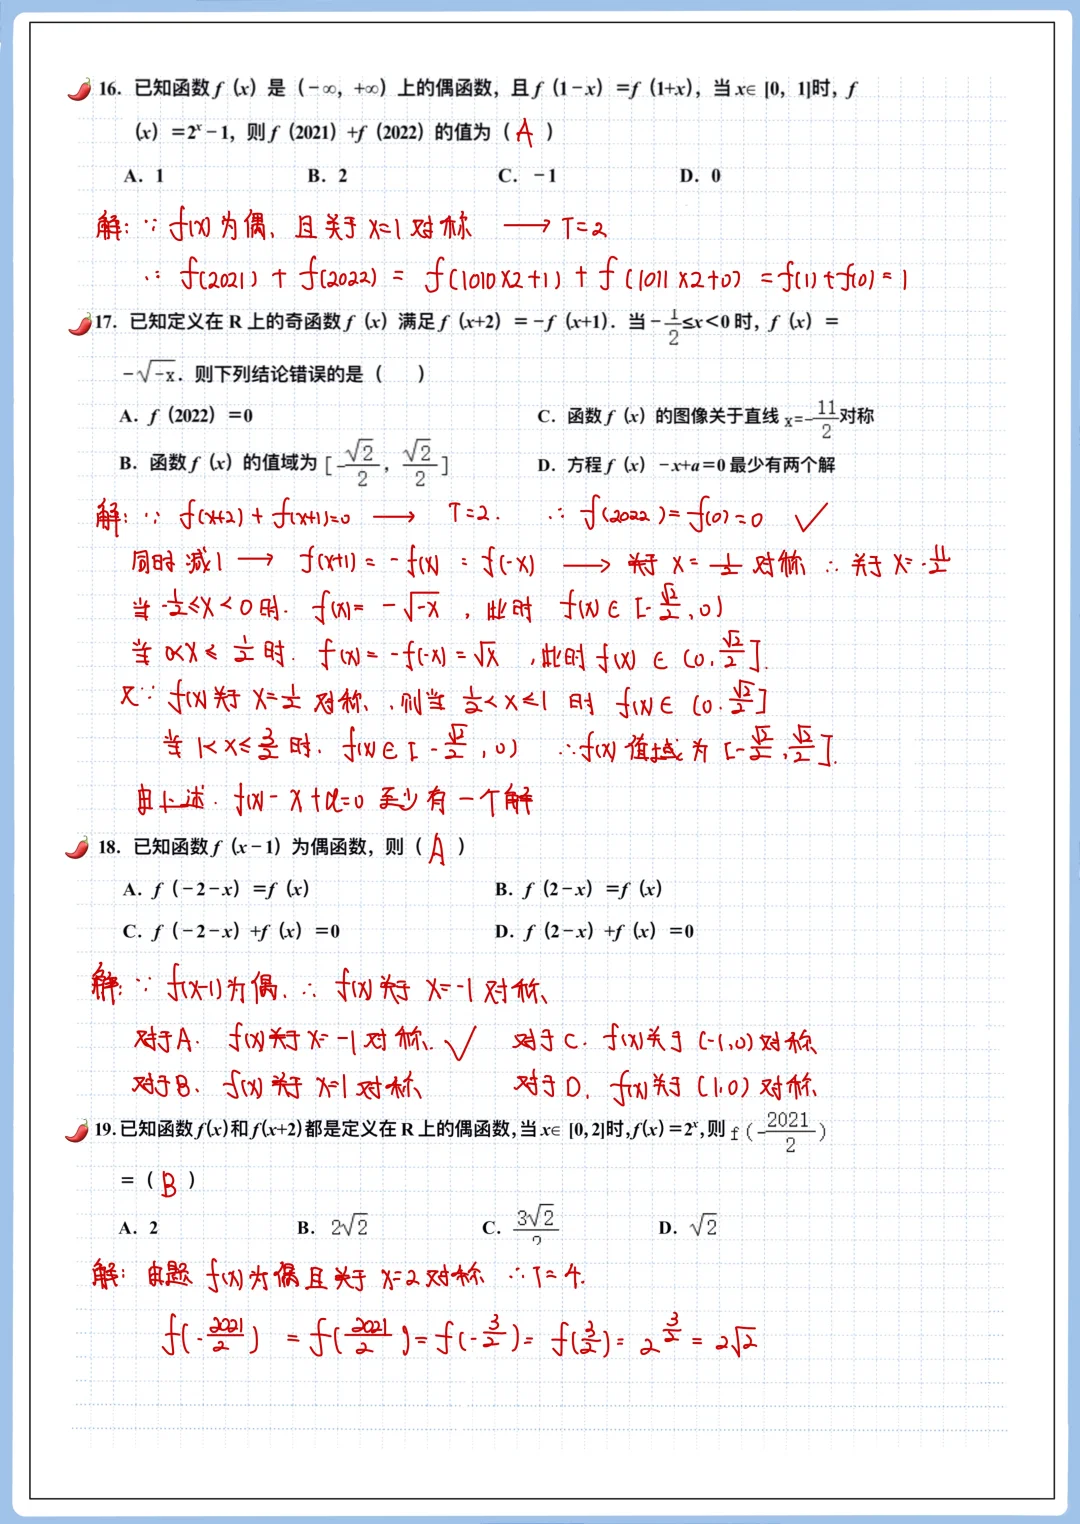 16. 已知函数 f (x) 是 (-∞, +∞) 上的偶函数，且 f (1-x) =f (1+x)，当 x∈ [0, 1]时，f
(x) =2ˣ-1，则 f (2021) +f (2022) 的值为 ( A )
A. 1 B. 2 C. -1 D. 0
解: ∵ f(x) 为偶、且关于 x=1 对称 → T=2
∴ f(2021) + f(2022) = f(1010×2+1) + f(1011×2+0) = f(1)+f(0) = 1
17. 已知定义在 R 上的奇函数 f (x) 满足 f (x+2) = -f (x+1). 当 -1/2≤x<0 时，f (x) =
-√-x. 则下列结论错误的是 ( )
A. f (2022) =0 C. 函数 f (x) 的图像关于直线 x=-11/2 对称
B. 函数 f (x) 的值域为 [-√2/2, √2/2] D. 方程 f (x) -x+a=0 最少有两个解
解: ∵ f(x+2) + f(x+1)=0 → T=2. ∴ f(2022)=f(0)=0 ✓
同时减1 → f(x+1) = -f(x) = f(-x) → 关于 x=1/2 对称 ∴ 关于 x=-11/2
当 -1/2≤x<0时. f(x)= -√-x, 此时 f(x)∈[-√2/2,0)
当 0<x≤1/2 时. f(x)=-f(-x)=√x, 此时 f(x)∈(0,√2/2].
又∵ f(x)关于 x=1/2 对称、则当 1/2<x≤1 时 f(x)∈(0.√2/2]
当 1<x≤3/2 时. f(x)∈[-√2/2,0) ∴f(x) 值域为 [-√2/2,√2/2].
由上述. f(x)-x+a=0 至少有一个解
18. 已知函数 f (x-1) 为偶函数，则 ( A )
A. f (-2-x) =f (x) B. f (2-x) =f (x)
C. f (-2-x) +f (x) =0 D. f (2-x) +f (x) =0
解: ∵ f(x-1)为偶. ∴ f(x)关于 x=-1 对称、
对于A. f(x)关于 x=-1 对称. ✓ 对于C. f(x)关于 (-1,0) 对称
对于B、 f(x) 关于 x=1 对称、 对于D. f(x)关于 (1,0) 对称、
19.已知函数 f(x)和 f(x+2)都是定义在 R 上的偶函数,当 x∈ [0,2]时,f(x)=2ˣ,则 f(-2021/2)
= ( B )
A. 2 B. 2√2 C. 3√2/2 D. √2
解: 由题 f(x)为偶且关于 x=2对称 ∴T=4.
f(-2021/2) = f(2021/2) = f(-3/2) = f(3/2) = 2^(3/2) = 2√2